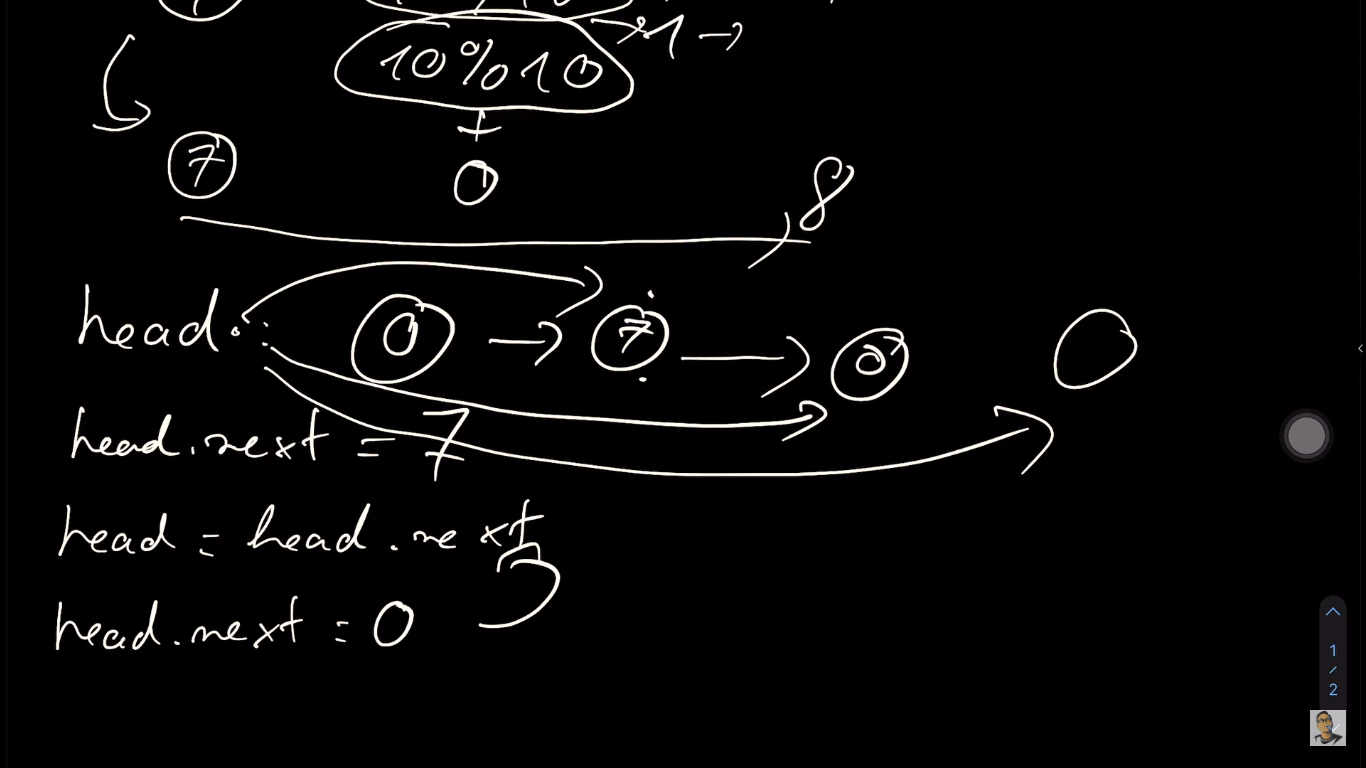 → 1 →
10%10
7 0 8
head. : 0 → 7 → 0
head.next = 7
head = head.next
head.next = 0
1
/
2